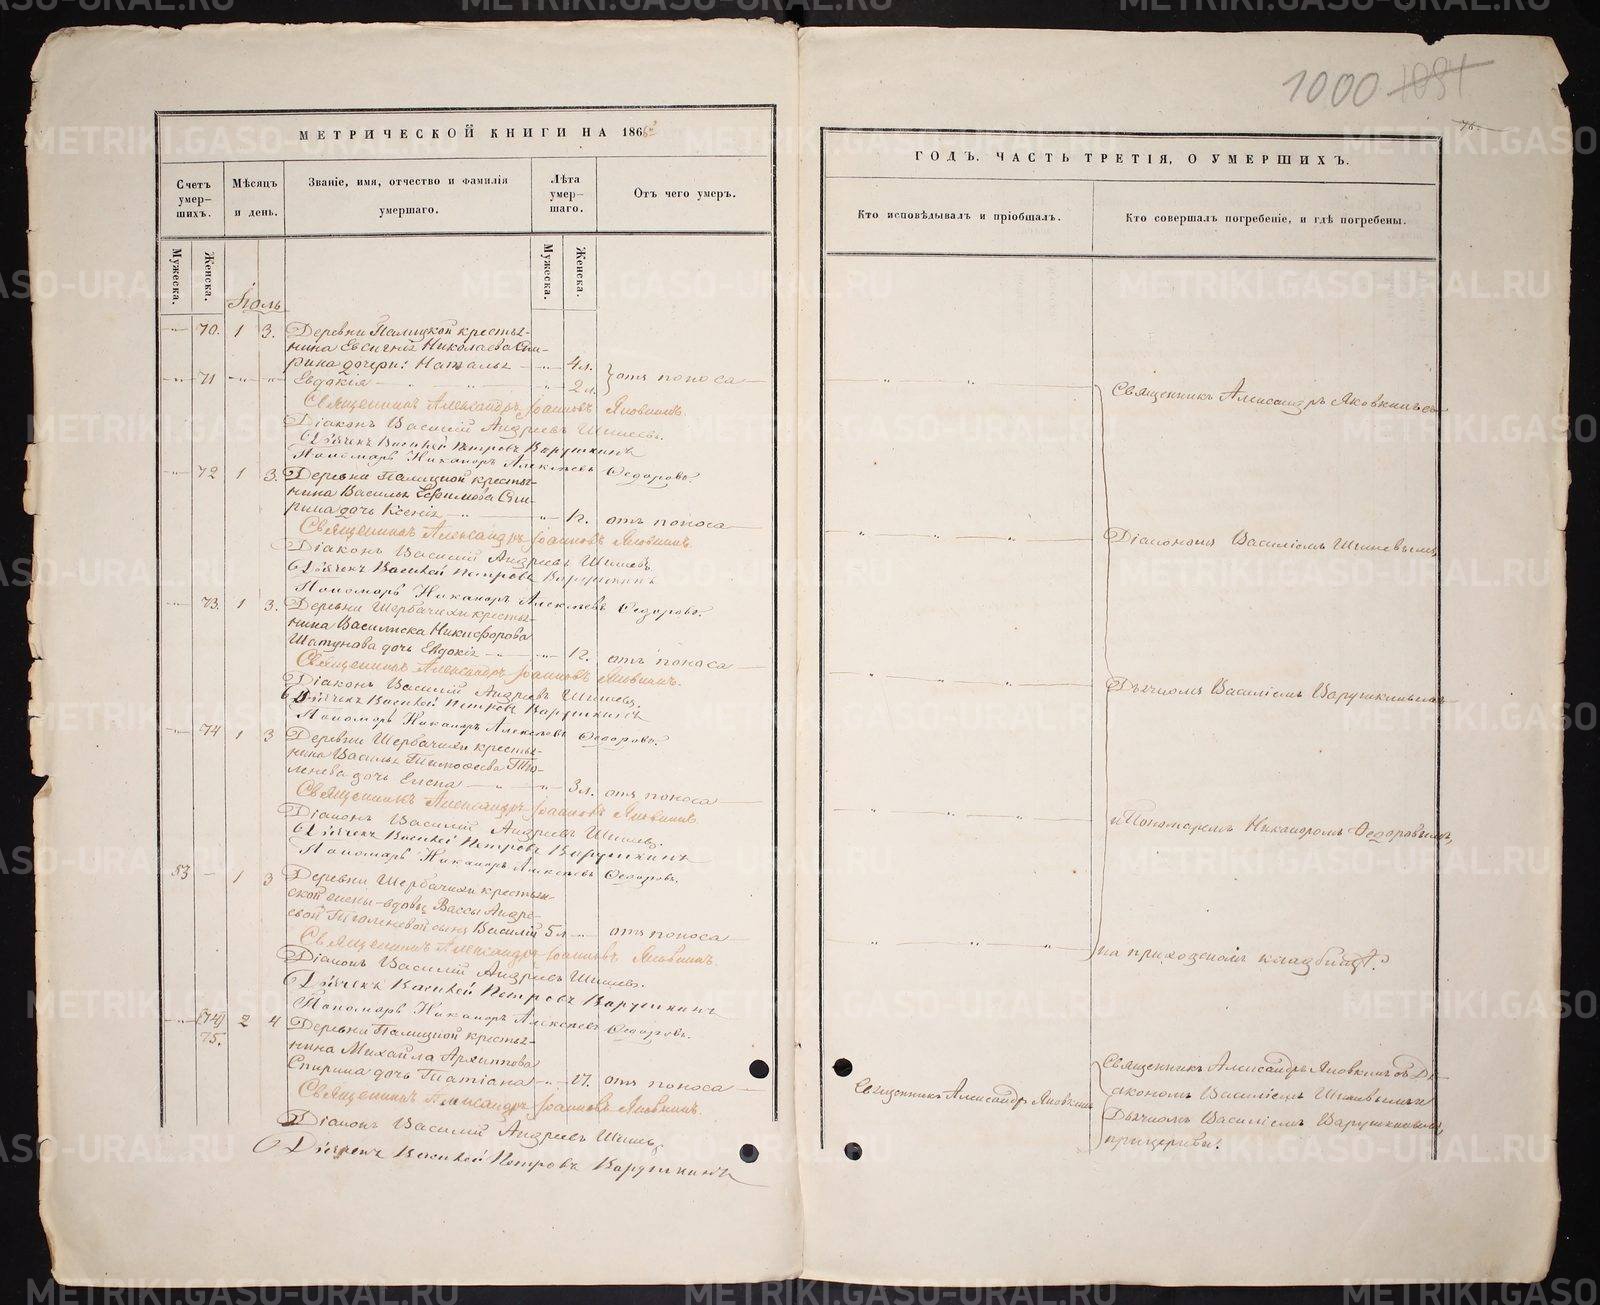 1000 1081
76.
МЕТРИЧЕСКОЙ КНИГИ НА 186
Счетъ умер-шихъ.
Мѣсяцъ и день.
Званіе, имя, отчество и фамилія умершаго.
Лѣта умер-шаго.
Отъ чего умеръ.
Мужеска.
Женска.
Мужеска.
Женска.
Іюль
70. 1 3. Деревни Палицкой кресть-
нина Евсигнія Николаева Спи-
рина дочери: Наталья 4 л.
71 Евдокія 2 л. отъ поноса
Священникъ Александръ Іоанновъ Яковкинъ.
Діаконъ Василій Андреевъ Шишевъ.
Дьячекъ Василей Петровъ Варушкинъ
Пономарь Никаноръ Алексѣевъ Федоровъ.
72 1 3. Деревни Палицкой кресть-
нина Василья Ефимова Спи-
рина дочь Ксенія 1 г. отъ поноса
Священникъ Александръ Іоанновъ Яковкинъ.
Діаконъ Василій Андреевъ Шишевъ.
Дьячекъ Василей Петровъ Варушкинъ
Пономарь Никаноръ Алексѣевъ Федоровъ.
73. 1 3. Деревни Щербачихи кресть-
нина Василиска Никифорова
Шатунова дочь Евдокія 1 г. отъ поноса
Священникъ Александръ Іоанновъ Яковкинъ.
Діаконъ Василій Андреевъ Шишевъ.
Дьячекъ Василей Петровъ Варушкинъ
Пономарь Никаноръ Алексѣевъ Федоровъ.
74 1 3 Деревни Щербачихи кресть-
нина Василья Тимофеева
дочь Елена 3 л. отъ поноса
Священникъ Александръ Іоанновъ Яковкинъ
Діаконъ Василій Андреевъ Шишевъ.
Дьячекъ Василей Петровъ Варушкинъ
Пономарь Никаноръ Алексѣевъ Федоровъ.
53 1 3 Деревни Щербачихи крестьян-
ской жены-вдовы Вассы Андре-
евой сынъ Василій 5 л отъ поноса
Священникъ Александръ Іоанновъ Яковкинъ.
Діаконъ Василій Андреевъ Шишевъ.
Дьячекъ Василей Петровъ Варушкинъ
Пономарь Никаноръ Алексѣевъ Федоровъ.
(74) 75. 2 4 Деревни Палицкой кресть-
нина Михайла Архиппова
Спирина дочь Татіана 17. отъ поноса
Священникъ Александръ Іоанновъ Яковкинъ.
Діаконъ Василій Андреевъ Шишевъ
Дьячекъ Василей Петровъ Варушкинъ
ГОДЪ. ЧАСТЬ ТРЕТІЯ, О УМЕРШИХЪ.
Кто исповѣдывалъ и пріобщалъ.
Кто совершалъ погребеніе, и гдѣ погребены.
Священникъ Александръ Яковкинъ съ
Діакономъ Василіемъ Шишевымъ
Дьячкомъ Василіемъ Варушкинымъ
и Пономаремъ Никаноромъ Федоровымъ,
на приходскомъ кладбищѣ.
Священникъ Александръ Яковкинъ
Священникъ Александръ Яковкинъ съ Ді-
акономъ Василіемъ Шишевымъ и
Дьячкомъ Василіемъ Варушкинымъ,
при церкви.
METRIKI.GASO-URAL.RU